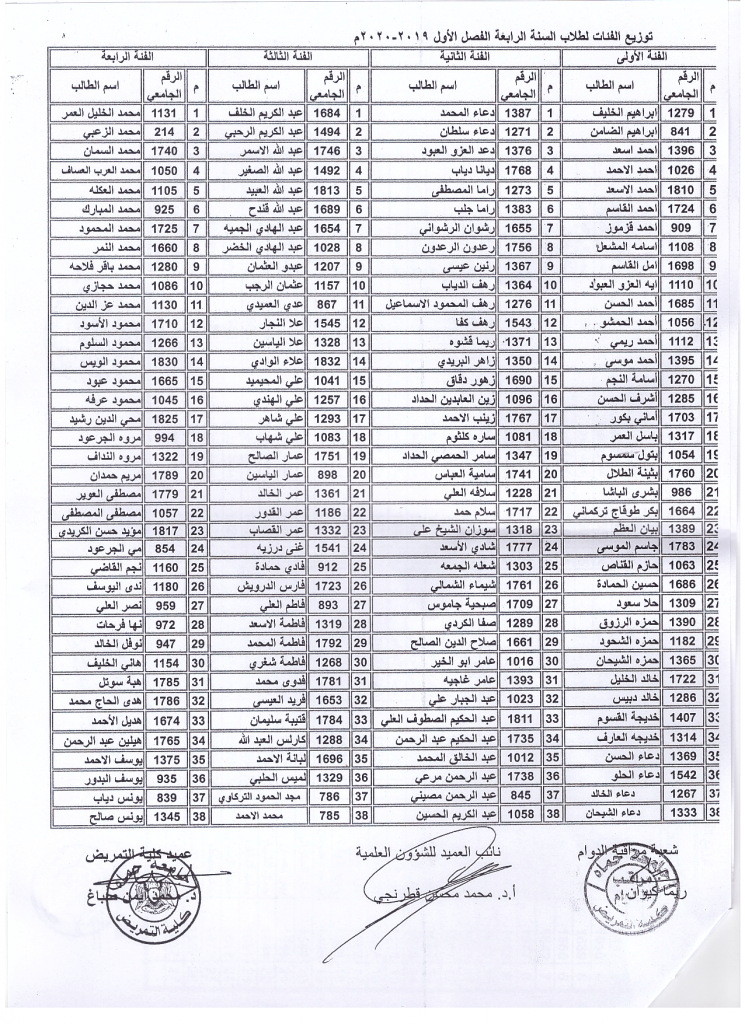 توزيع الفئات لطلاب السنة الرابعة الفصل الأول ٢٠١٩-٢٠٢٠م
الفئة الأولى الفئة الثانية الفئة الثالثة الفئة الرابعة
م الرقم الجامعي اسم الطالب م الرقم الجامعي اسم الطالب م الرقم الجامعي اسم الطالب م الرقم الجامعي اسم الطالب
1 1279 ابراهيم الخليف 1 1387 دعاء المحمد 1 1684 عبد الكريم الخلف 1 1131 محمد الخليل العمر
2 841 ابراهيم الضامن 2 1271 دعاء سلطان 2 1494 عبد الكريم الرحبي 2 214 محمد الزعبي
3 1396 احمد اسعد 3 1376 دعد العزو العبود 3 1746 عبد الله الاسمر 3 1740 محمد السمان
4 1026 احمد الاحمد 4 1768 ديانا دياب 4 1492 عبد الله الصغير 4 1050 محمد العرب العساف
5 1810 احمد الاسعد 5 1273 راما المصطفى 5 1813 عبد الله العبيد 5 1105 محمد العكله
6 1724 احمد القاسم 6 1383 راما جلب 6 1689 عبد الله قندح 6 925 محمد المبارك
7 909 احمد قزموز 7 1655 رشوان الرشواني 7 1654 عبد الهادي الجميه 7 1725 محمد المحمود
8 1108 اسامه المشعل 8 1756 رعدون الرعدون 8 1028 عبد الهادي الخضر 8 1660 محمد النمر
9 1698 امل القاسم 9 1367 رنين عيسى 9 1207 عبدو العثمان 9 1280 محمد باقر فلاحه
10 1110 ايه العزو العبود 10 1364 رهف الدياب 10 1157 عثمان الرجب 10 1086 محمد حجازي
11 1685 أحمد الحسن 11 1276 رهف المحمود الاسماعيل 11 867 عدي العميدي 11 1130 محمد عز الدين
12 1056 أحمد الحمشو 12 1543 رهف كفا 12 1545 علا النجار 12 1710 محمود الأسود
13 1112 أحمد ريمي 13 1371 ريما قشوه 13 1328 علا الياسين 13 1266 محمود السلوم
14 1395 أحمد موسى 14 1350 زاهر البريدي 14 1832 علاء الوادي 14 1830 محمود الويس
15 1270 أسامة النجم 15 1690 زهور دقاق 15 1041 علي المحيميد 15 1665 محمود عبود
16 1285 أشرف الحسن 16 1096 زين العابدين الحداد 16 1257 علي الهندي 16 1045 محمود عرفه
17 1703 أماني بكور 17 1767 زينب الاحمد 17 1293 علي شاهر 17 1825 محي الدين رشيد
18 1317 باسل العمر 18 1081 ساره كلثوم 18 1083 علي شهاب 18 994 مروه الجرعود
19 1054 بتول سمسوم 19 1347 سامر الحمصي الحداد 19 1751 عمار الصالح 19 1322 مروه النداف
20 1760 بثينة الطلال 20 1741 سامية العباس 20 898 عمار الياسين 20 1789 مريم حمدان
21 986 بشرى الباشا 21 1228 سلافه العلي 21 1361 عمر الخالد 21 1779 مصطفى العوير
22 1664 بكر طوقاج تركماني 22 1717 سلام حمد 22 1186 عمر القدور 22 1057 مصطفى المصطفى
23 1389 بيان العظم 23 1318 سوزان الشيخ علي 23 1332 عمر القصاب 23 1817 مؤيد حسن الكريدي
24 1783 جاسم الموسى 24 1777 شادي الأسعد 24 1541 غنى درزيه 24 854 مي الجرعود
25 1063 حازم القناص 25 1303 شعله الجمعه 25 912 فادي حمادة 25 1160 نجم القاضي
26 1686 حسين الحمادة 26 1761 شيماء الشمالي 26 1723 فارس الدرويش 26 1180 ندى اليوسف
27 1309 حلا سعود 27 1709 صبحية جاموس 27 893 فاطم العلي 27 959 نصر العلي
28 1390 حمزه الرزوق 28 1289 صفا الكردي 28 1319 فاطمة الاسعد 28 972 نها فرحات
29 1182 حمزه الشحود 29 1661 صلاح الدين الصالح 29 1792 فاطمة المحمد 29 947 نوفل الخالد
30 1365 حمزه الشيحان 30 1016 عامر ابو الخير 30 1268 فاطمة شغري 30 1154 هاني الخليف
31 1722 خالد الخليل 31 1393 عامر غاجيه 31 1781 فدوى محمد 31 1785 هبة سوتل
32 1286 خالد دبيس 32 1023 عبد الجبار علي 32 1653 فريد العيسى 32 1786 هدى الحاج محمد
33 1407 خديجة القسوم 33 1811 عبد الحكيم الصطوف العلي 33 1784 قتيبة سليمان 33 1674 هديل الأحمد
34 1314 خديجه العارف 34 1735 عبد الحكيم عبد الرحمن 34 1288 كارلس العبد الله 34 1765 هيلين عبد الرحمن
35 1369 دعاء الحسن 35 1012 عبد الخالق المحمد 35 1696 لبانة الاحمد 35 1375 يوسف الاحمد
36 1542 دعاء الحلو 36 1738 عبد الرحمن مرعي 36 1329 لميس الحلبي 36 935 يوسف البدور
37 1267 دعاء الخالد 37 845 عبد الرحمن مصيني 37 786 مجد الحمود التركاوي 37 839 يونس دياب
38 1333 دعاء الشيحان 38 1058 عبد الكريم الحسين 38 785 محمد الاحمد 38 1345 يونس صالح
شعبة مراقبة الدوام نائب العميد للشؤون العلمية عميد كلية التمريض
ريما كيوان أ.د. محمد محسن قطرنجي د. محمود
كلية التمريض